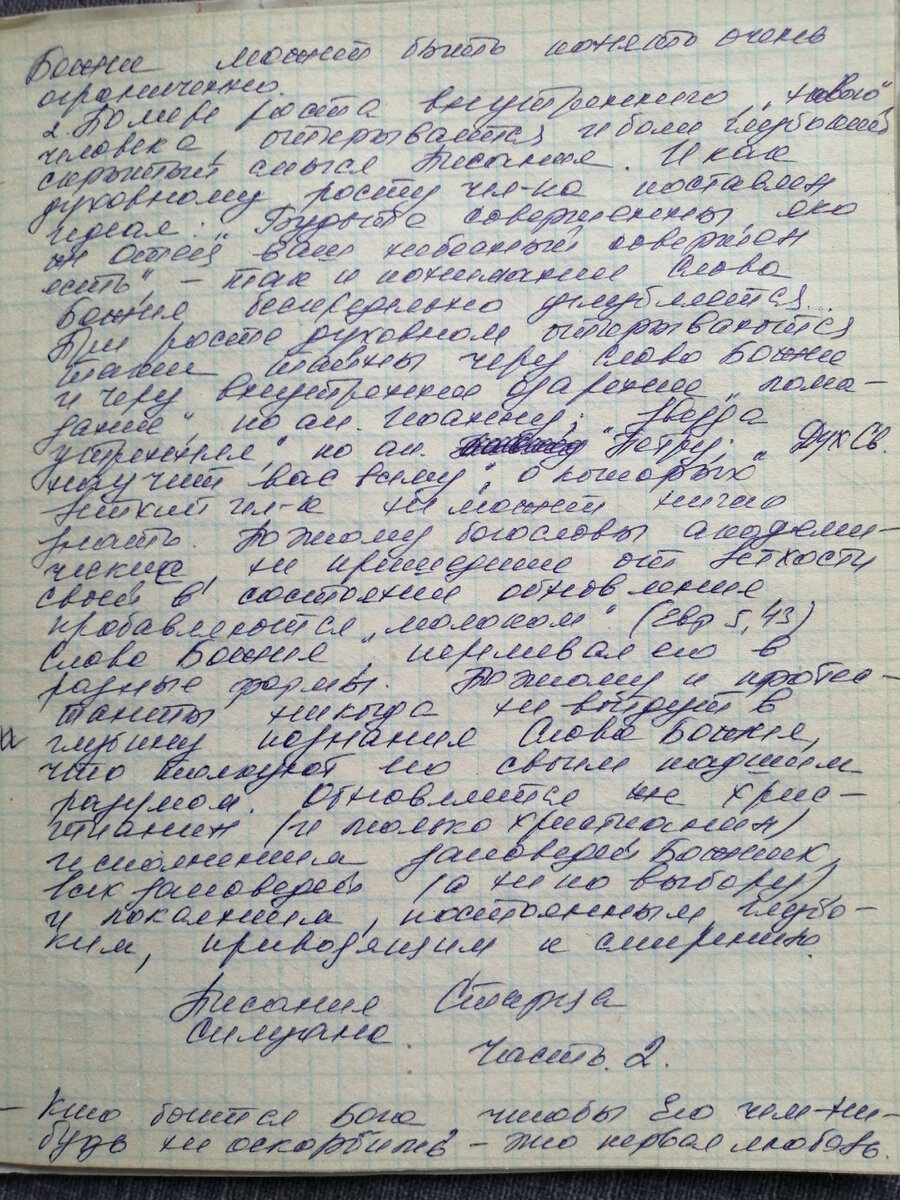 Божие может быть понято очень
ограниченно.
2. По мере роста внутреннего „нового"
человека, открывается и более глубокий
скрытый смысл Писания. И как
духовному росту чел-ка поставлен
идеал: „Будьте совершенны, яко
же Отец ваш небесный совершен
есть", – так и понимание Слова
Божия беспредельно углубляется...
При росте духовном открываются
такие тайны через Слово Божие
и через внутреннее озарение, „пома-
зание" по ап. Иоанну; „звезда
утренняя" по ап. Петру; „Дух Св.
научит вас всему", о которых
ветхий чел-к не может ничего
знать. Потому богословы академи-
ческие не пришедшие от ветхости
своей в состояние обновления
пробавляются „молоком". (Евр 5, 13)
Слова Божия, переливая его в
разные формы. Потому и протес-
танты никогда не войдут в
глубину познания Слова Божия,
что толкуют его своим падшим
разумом. Обновляется же хрис-
тианин (и только христианин)
исполнением заповедей Божиих,
всех заповедей (а не по выбору)
и покаянием, постоянным, глубо-
ким, приводящим к смирению.
Писания Старца
Силуана.
Часть. 2.
– Кто боится Бога чтобы Его чем-ни-
будь не оскорбить – это первая любовь.